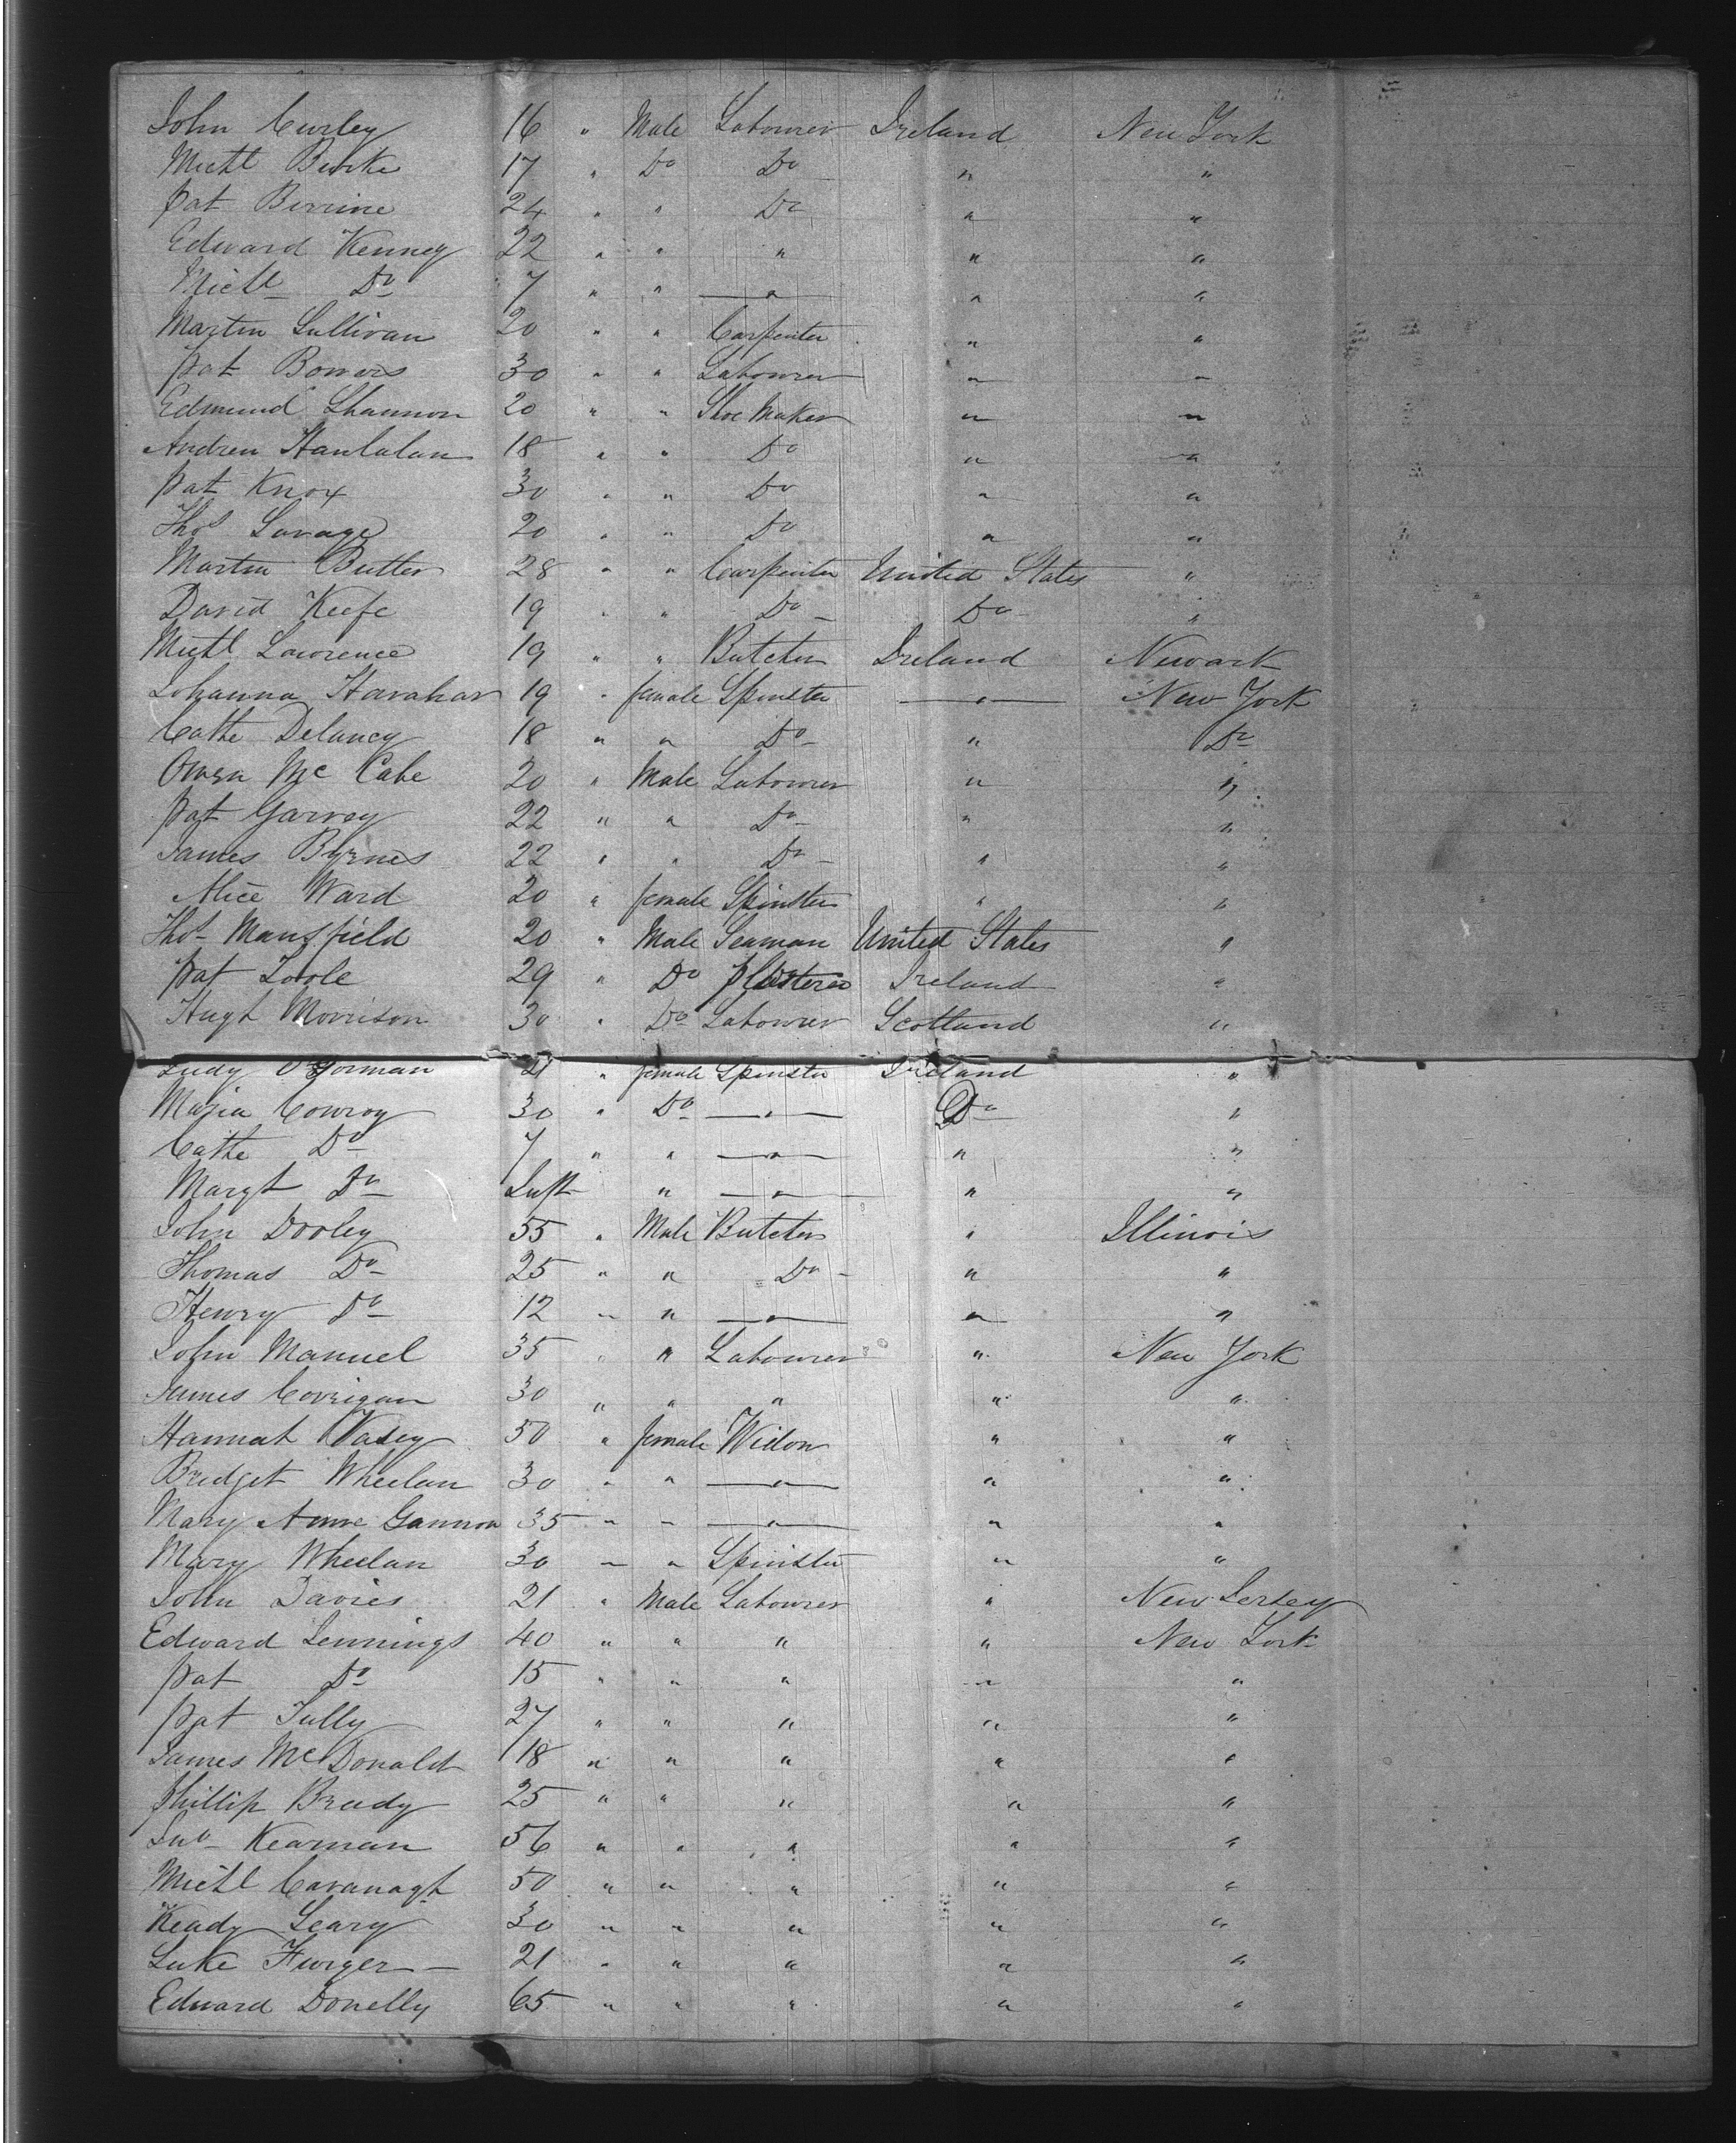 John Curley 16 " Male Labourer Ireland New York
Michl Burke 17 " Do Do " "
Pat Birrine 24 " " Do " "
Edward Kenney 22 " " " " "
Michl Do 7 " " " " "
Martin Sullivan 20 " " Carpenter " "
Pat Bowers 30 " " Labourer " "
Edmund Shannon 20 " " Shoe Maker " "
Andrew Hanlalan 18 " " Do " "
Pat Knox 30 " " Do " "
Thos Savage 20 " " Do " "
Martin Butler 28 " " Carpenter United States "
David Keefe 19 " " Do Do "
Michl Lawrence 19 " " Butcher Ireland Newark
Johanna Hanahan 19 " female Spinster " New York
Cathe Delancy 18 " " Do " Do
Owen McCabe 20 " Male Labourer " "
Pat Garvey 22 " " Do " "
James Byrnes 22 " " Do " "
Alice Ward 20 " female Spinster " "
Thos Mansfield 20 " Male Seaman United States "
Pat Toole 29 " Do Plasterer Ireland "
Hugh Morrison 30 " Do Labourer Scotland "
Judy O'Gorman 21 " female Spinster Ireland "
Maria Conroy 30 " Do " Do "
Cathe Do 7 " " " " "
Margt Do Inft " " " "
John Dooley 55 " Male Butcher " Illinois
Thomas Do 25 " " Do " "
Henry Do 12 " " " " "
John Manuel 35 " " Labourer " New York
James Corrigan 30 " " " " "
Hannah Vasey 50 " female Widow " "
Bridget Wheelan 30 " " " " "
Mary Anne Gannon 35 " " " " "
Mary Wheelan 30 " " Spinster " "
John Davies 21 " Male Labourer " New Jersey
Edward Jennings 40 " " " " New York
Pat Do 15 " " " " "
Pat Tully 27 " " " " "
James McDonald 18 " " " " "
Phillip Brady 25 " " " " "
Jno Kearnan 56 " " " " "
Michl Cavanagh 50 " " " " "
Keady Leary 30 " " " " "
Luke Furger 21 " " " " "
Edward Donelly 65 " " " " "